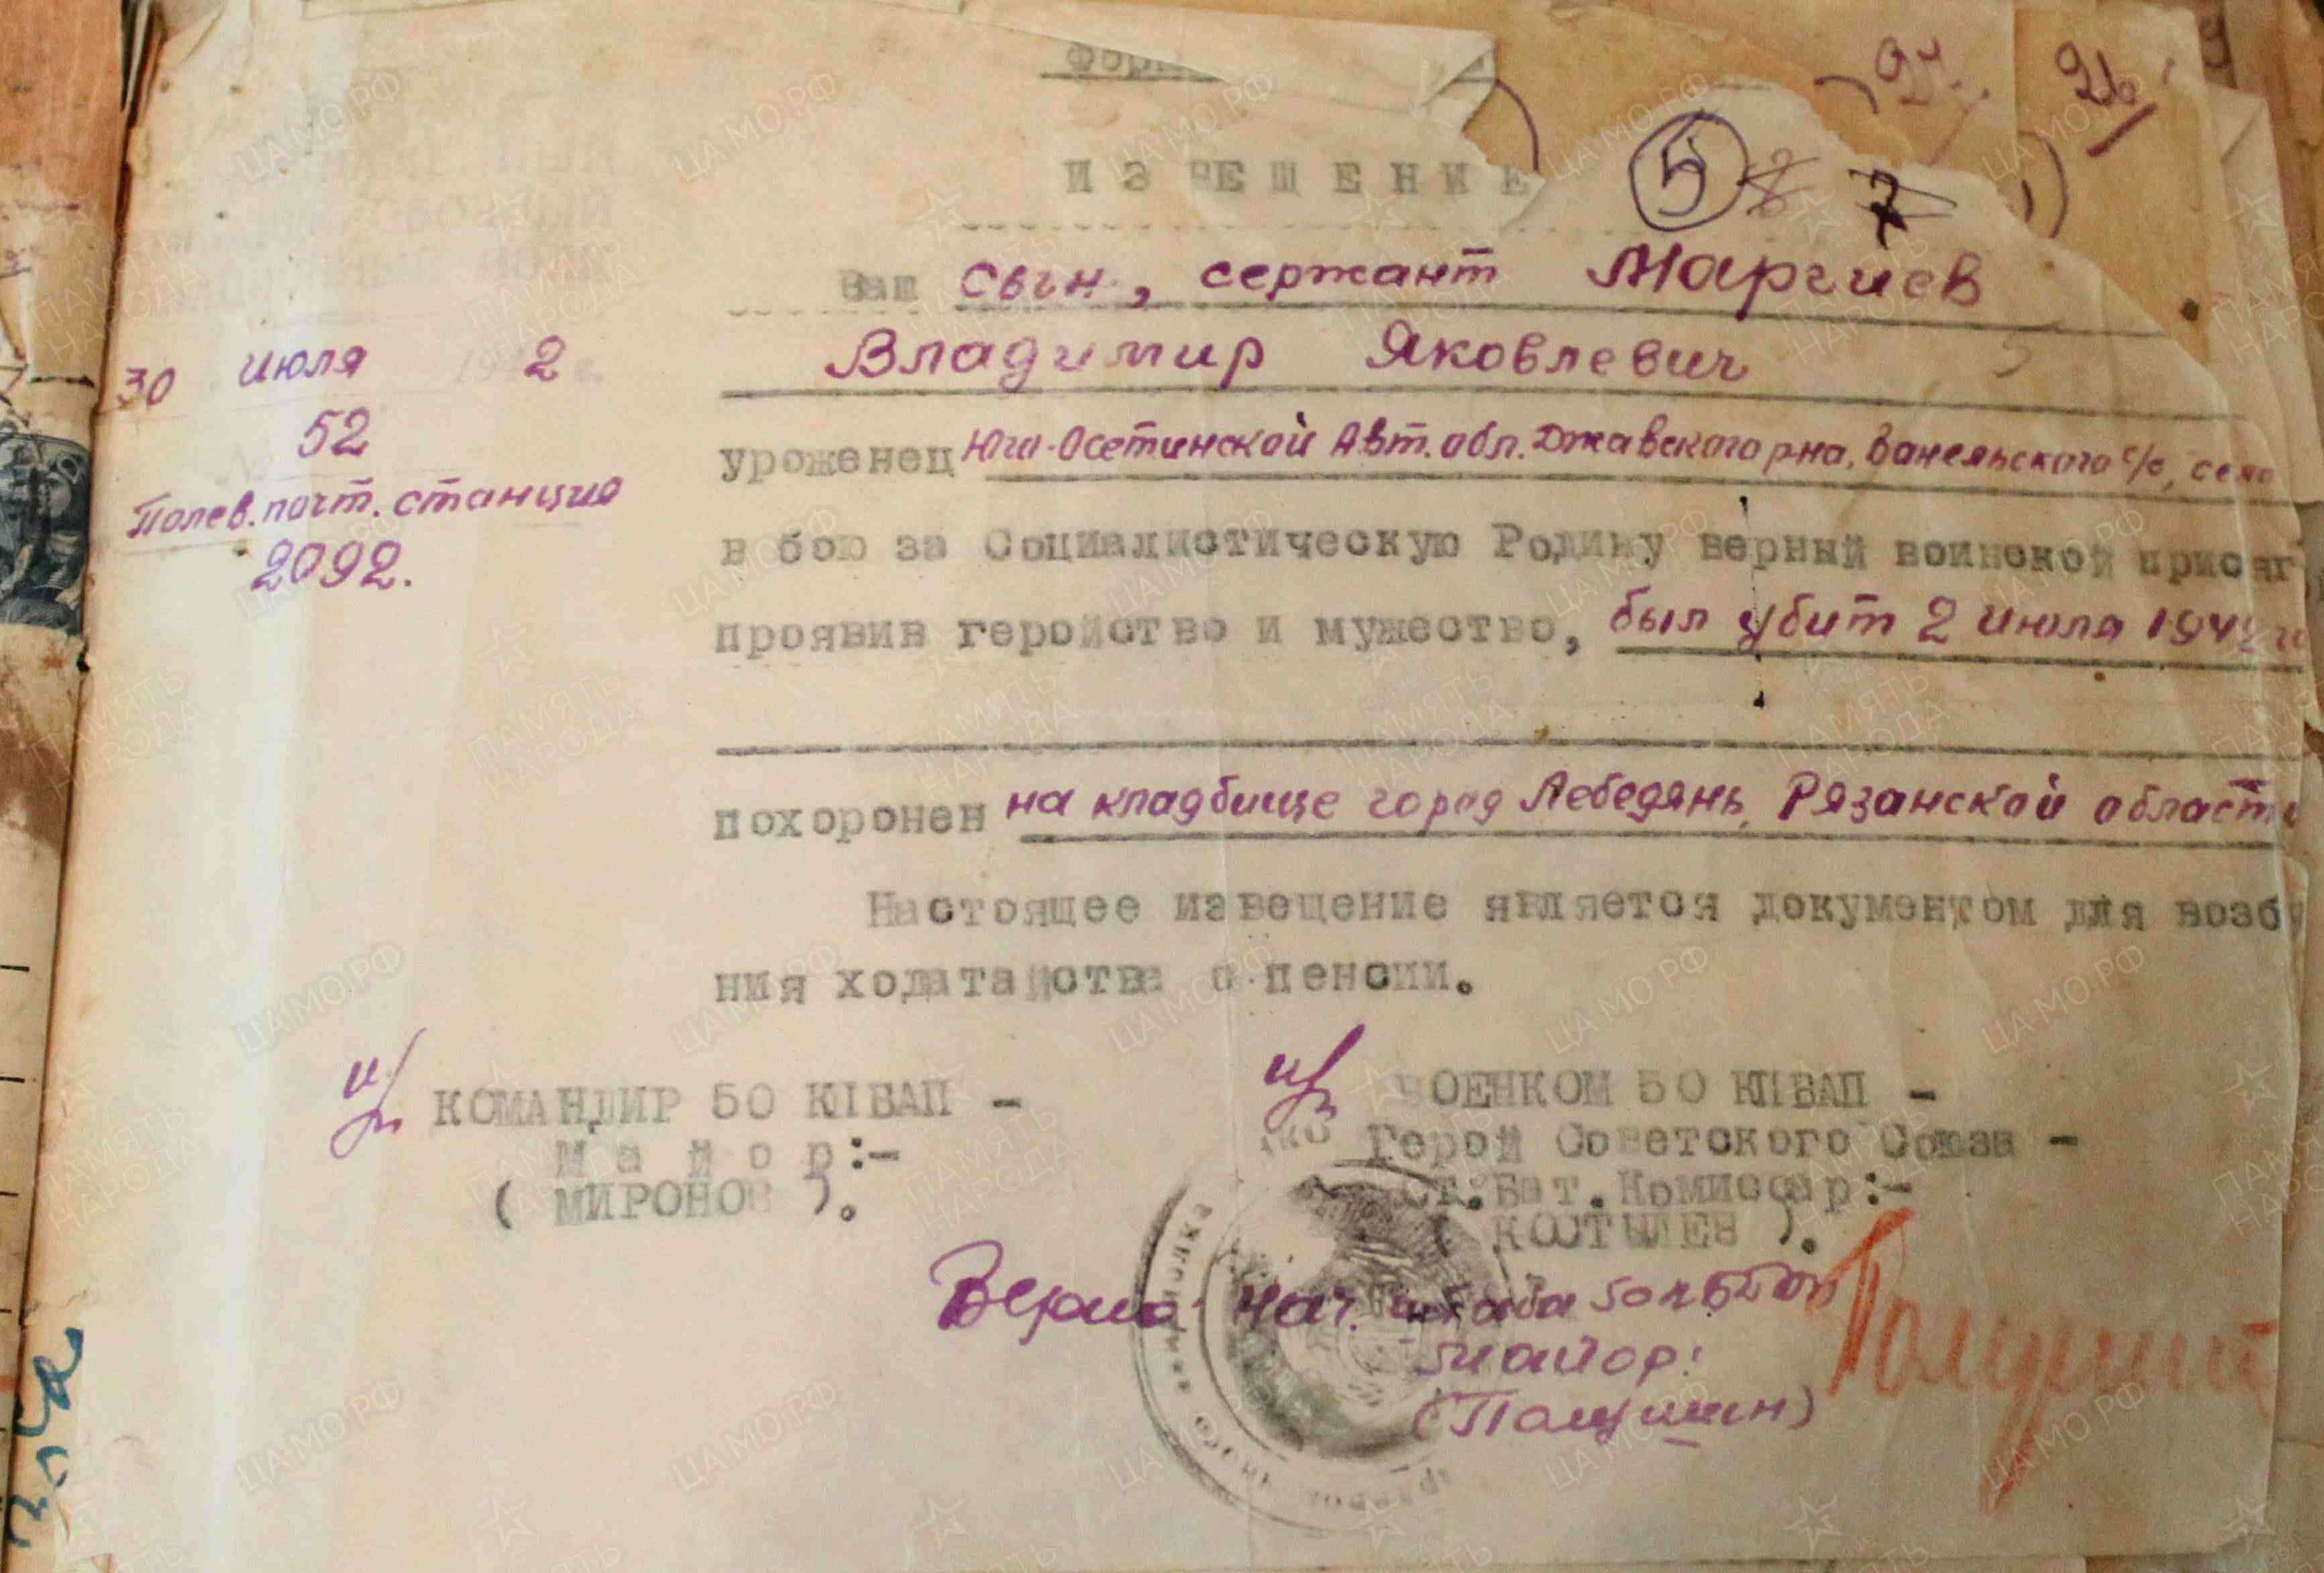 Форм
ИЗВЕЩЕНИЕ
5 7
Ваш сын, сержант Маргиев
Владимир Яковлевич
30 июля 194 2 г.
№ 52
Полев. почт. станция
2092.
уроженец Юго-Осетинской Авт. обл. Джавского рна, Ванельского с/с, село
в бою за Социалистическую Родину верный воинской присяг
проявив геройство и мужество, был убит 2 июля 1942 го
похоронен на кладбище город Лебедянь, Рязанской области
Настоящее извещение является документом для возбу
ния ходатайства о пенсии.
п/п КОМАНДИР 50 КПБАП -
майор:-
( МИРОНОВ ).
п/п ВОЕНКОМ 50 КПБАП -
Герой Советского Союза -
Ст.Бат.Комиссар:-
( КОСТЫЛЕВ ).
Верно: нач. штаба
майор:
ЦАМО.РФ
ПАМЯТЬ НАРОДА